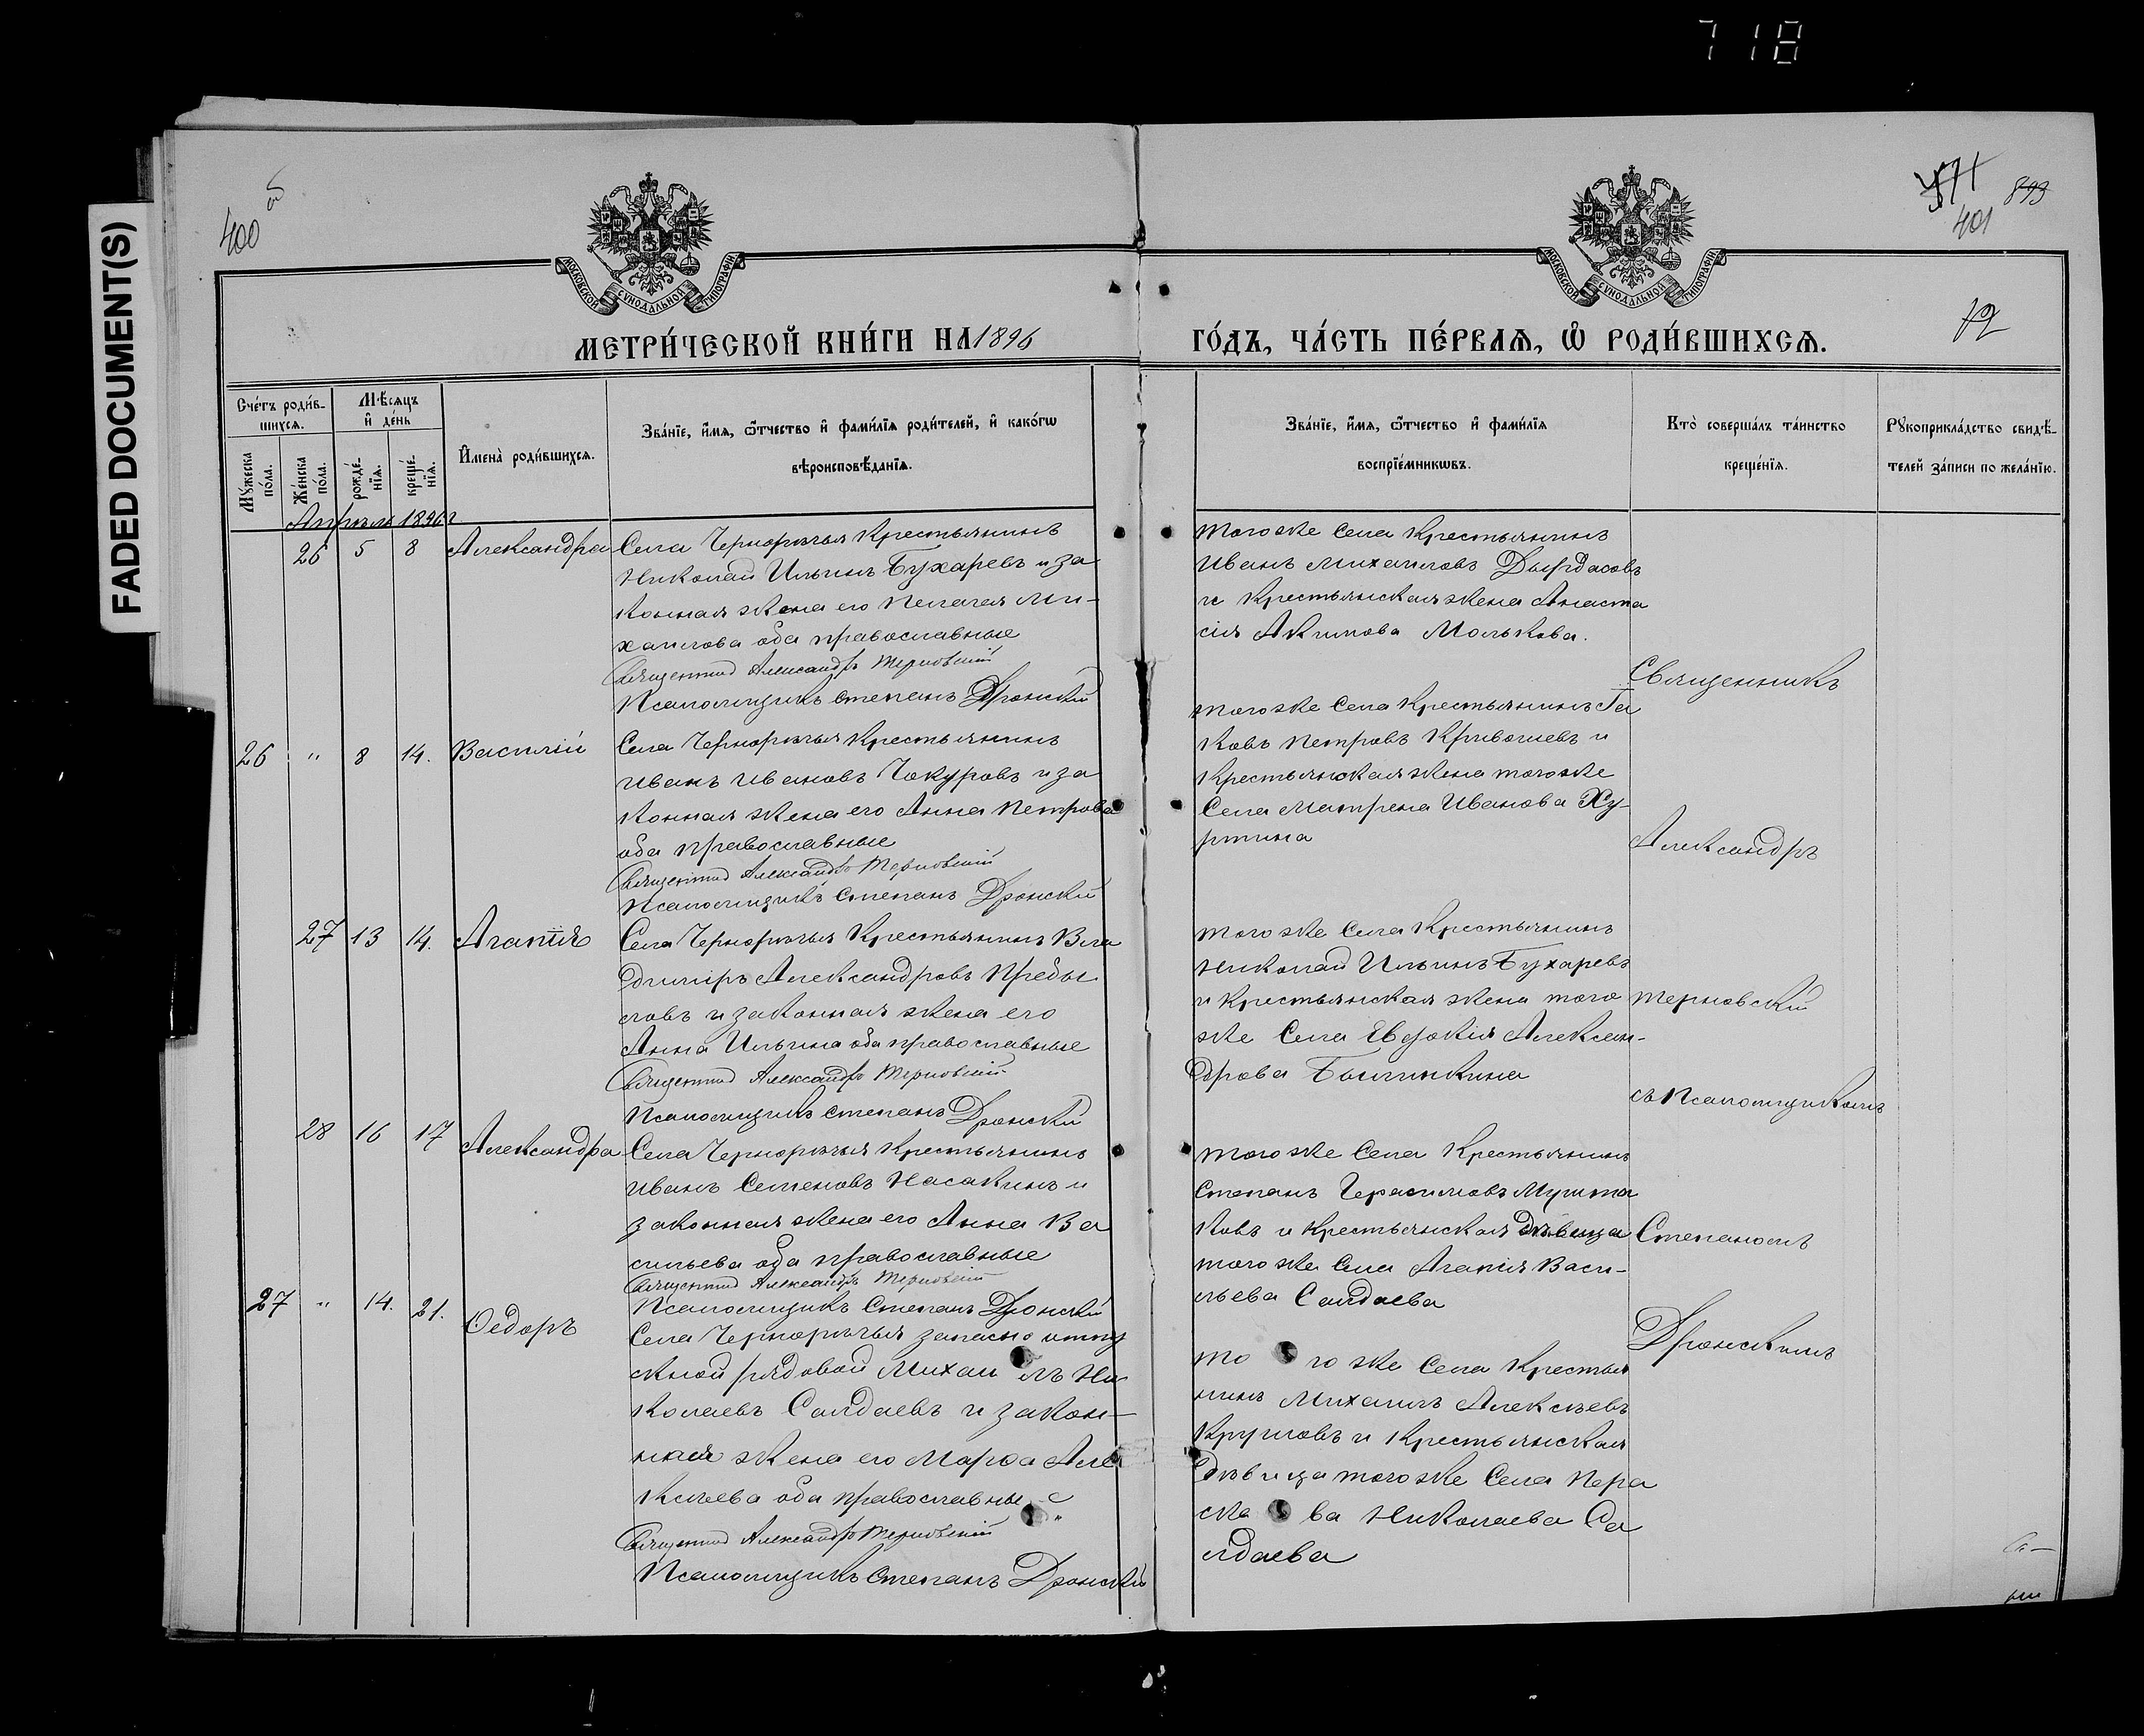 718
FADED DOCUMENT(S)
400 об
401
893
12
МОСКОВСКОЙ СѴНОДАЛЬНОЙ ТИПОГРАФІИ
МОСКОВСКОЙ СѴНОДАЛЬНОЙ ТИПОГРАФІИ
МЕТРИ́ЧЕСКОЙ КНИ́ГИ НА 1896
ГО́ДЪ, ЧА́СТЬ ПЕ́РВАѦ, Ѽ РОДИ́ВШИХСѦ.
Сче́тъ роди́в-
шихсѧ.
Му́жеска по́ла.
Же́нска по́ла.
Мѣ́сѧцъ
и҆ де́нь
рожде́-
нїѧ.
креще́-
нїѧ.
И҆мена̀ роди́вшихсѧ.
Зва́нїе, и҆́мѧ, ѻ҆́тчество и҆ фами́лїѧ роди́телей, и҆ како́гѡ
вѣроисповѣ́данїѧ.
Зва́нїе, и҆́мѧ, ѻ҆́тчество и҆ фами́лїѧ
воспрїе́мникѡвъ.
Кто̀ соверша́лъ та́инство
креще́нїѧ.
Рꙋкоприкла́дство свидѣ́-
телей за́писи по жела́нїю.
Апрѣль 1896 г
26 5 8 Александра
Села Чернорѣчья Крестьянинъ
Николай Ильинъ Бухаревъ и за
конная жена его Пелагея Ми-
хаилова оба православные
Священникъ Александръ Терновскій
Псаломщикъ Степанъ Дронскій
Тогоже Села Крестьянинъ
Иванъ Михаиловъ
и Крестьянская жена Анаста
сія Акимова Молькова.
26 " 8 14. Василій
Села Чернорѣчья Крестьянинъ
Иванъ Ивановъ Чокуровъ и за
конная жена его Анна Петрова
оба православные
Священникъ Александръ Терновскій
Псаломщикъ Степанъ Дронскій
Тогоже Села Крестьянинъ Іа
ковъ Петровъ и
Крестьянская жена тогоже
Села Матрена Иванова Ху-
ртина
27 13 14. Агапія
Села Чернорѣчья Крестьянинъ Вла
диміръ Александровъ Преды
ловъ и законная жена его
Анна Ильина оба православные
Священникъ Александръ Терновскій
Псаломщикъ Степанъ Дронскій
Того же Села Крестьянинъ
Николай Ильинъ Бухаревъ
и Крестьянская жена того
же Села Евдокія Алексан-
дрова
28 16 17 Александра
Села Чернорѣчья Крестьянинъ
Иванъ Семеновъ Насакинъ и
законная жена его Анна Ва
сильева оба православные
Священникъ Александръ Терновскій
Псаломщикъ Степанъ Дронскій
Того же Села Крестьянинъ
Степанъ Герасимовъ Мушта
ковъ и Крестьянская дѣвица
того же Села Агапія Васи-
льева Салдаева
27 " 14. 21. Ѳедоръ
Села Чернорѣчья запасно отпу
скной рядовой Михаилъ Ни
колаевъ Салдаевъ и закон-
ная жена его Марѳа Але
ксѣева оба православные
Священникъ Александръ Терновскій
Псаломщикъ Степанъ Дронскій
Того же Села Крестья
нинъ Михаилъ Алексѣевъ
Кругловъ и Крестьянская
дѣвица тогоже Села Пара
скева Николаева Са
лдаева
Священникъ
Александръ
Терновскій
съ Псаломщикомъ
Степаномъ
Дронскимъ